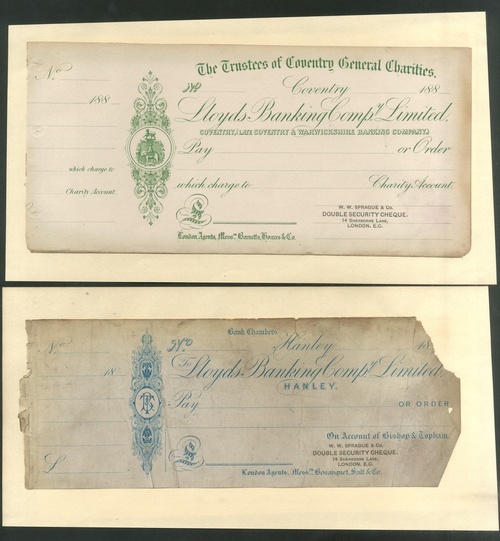 The Trustees of Coventry General Charities.
No
No
Coventry 188
188
Lloyds Banking Compy. Limited.
COVENTRY, (LATE COVENTRY & WARWICKSHIRE BANKING COMPANY.)
Pay
or Order
which charge to
which charge to
Charity Account.
Charity Account.
W. W. SPRAGUE & Co.
DOUBLE SECURITY CHEQUE.
14 SHERBORNE LANE,
LONDON, E.C.
£
London Agents, Messrs. Barnetts, Hoares & Co.
Bank Chambers
No
No
Hanley 18
18
To Lloyds Banking Compy. Limited
HANLEY.
Pay
OR ORDER
On Account of Bishop & Topham.
W. W. SPRAGUE & Co.
DOUBLE SECURITY CHEQUE.
14 SHERBORNE LANE,
LONDON, E.C.
£
£
London Agents, Messrs. Bosanquet, Salt & Co.